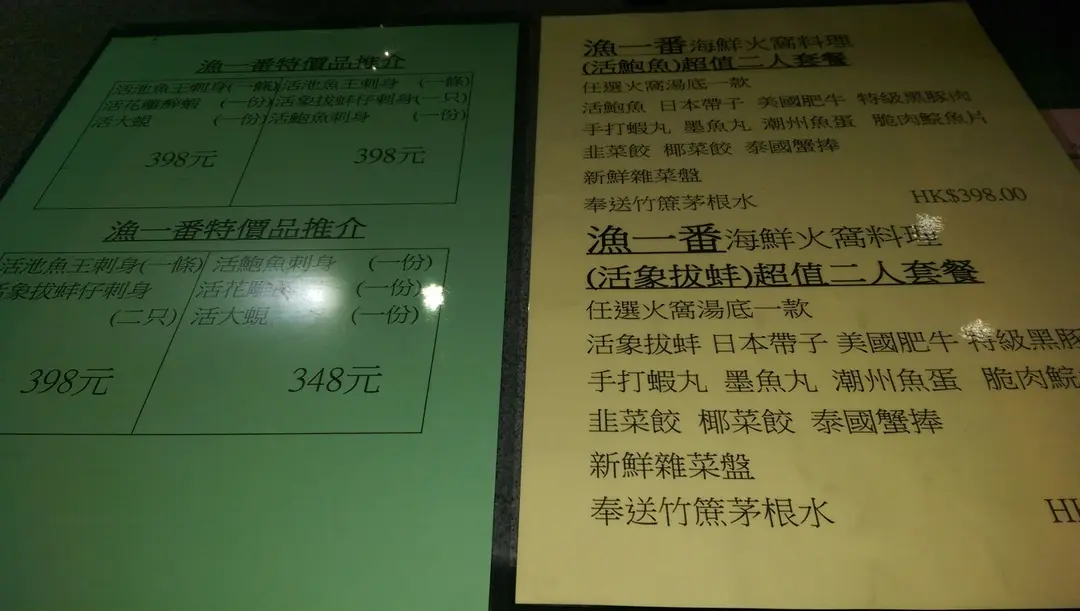 漁一番特價品推介
活池魚王刺身(一條) 活池魚王刺身 (一條)
活花雕醉蝦 (一份) 活象拔蚌仔刺身(一只)
活大蜆 (一份) 活鮑魚刺身 (一份)
398元 398元
漁一番特價品推介
活池魚王刺身(一條) 活鮑魚刺身 (一份)
活象拔蚌仔刺身 活花雕 (一份)
(二只) 活大蜆 (一份)
398元 348元
漁一番海鮮火窩料理
(活鮑魚)超值二人套餐
任選火窩湯底一款
活鮑魚 日本帶子 美國肥牛 特級黑豚肉
手打蝦丸 墨魚丸 潮州魚蛋 脆肉鯇魚片
韭菜餃 椰菜餃 泰國蟹捧
新鮮雜菜盤
奉送竹蔗茅根水 HK$398.00
漁一番海鮮火窩料理
(活象拔蚌)超值二人套餐
任選火窩湯底一款
活象拔蚌 日本帶子 美國肥牛 特級黑豚
手打蝦丸 墨魚丸 潮州魚蛋 脆肉鯇
韭菜餃 椰菜餃 泰國蟹捧
新鮮雜菜盤
奉送竹蔗茅根水